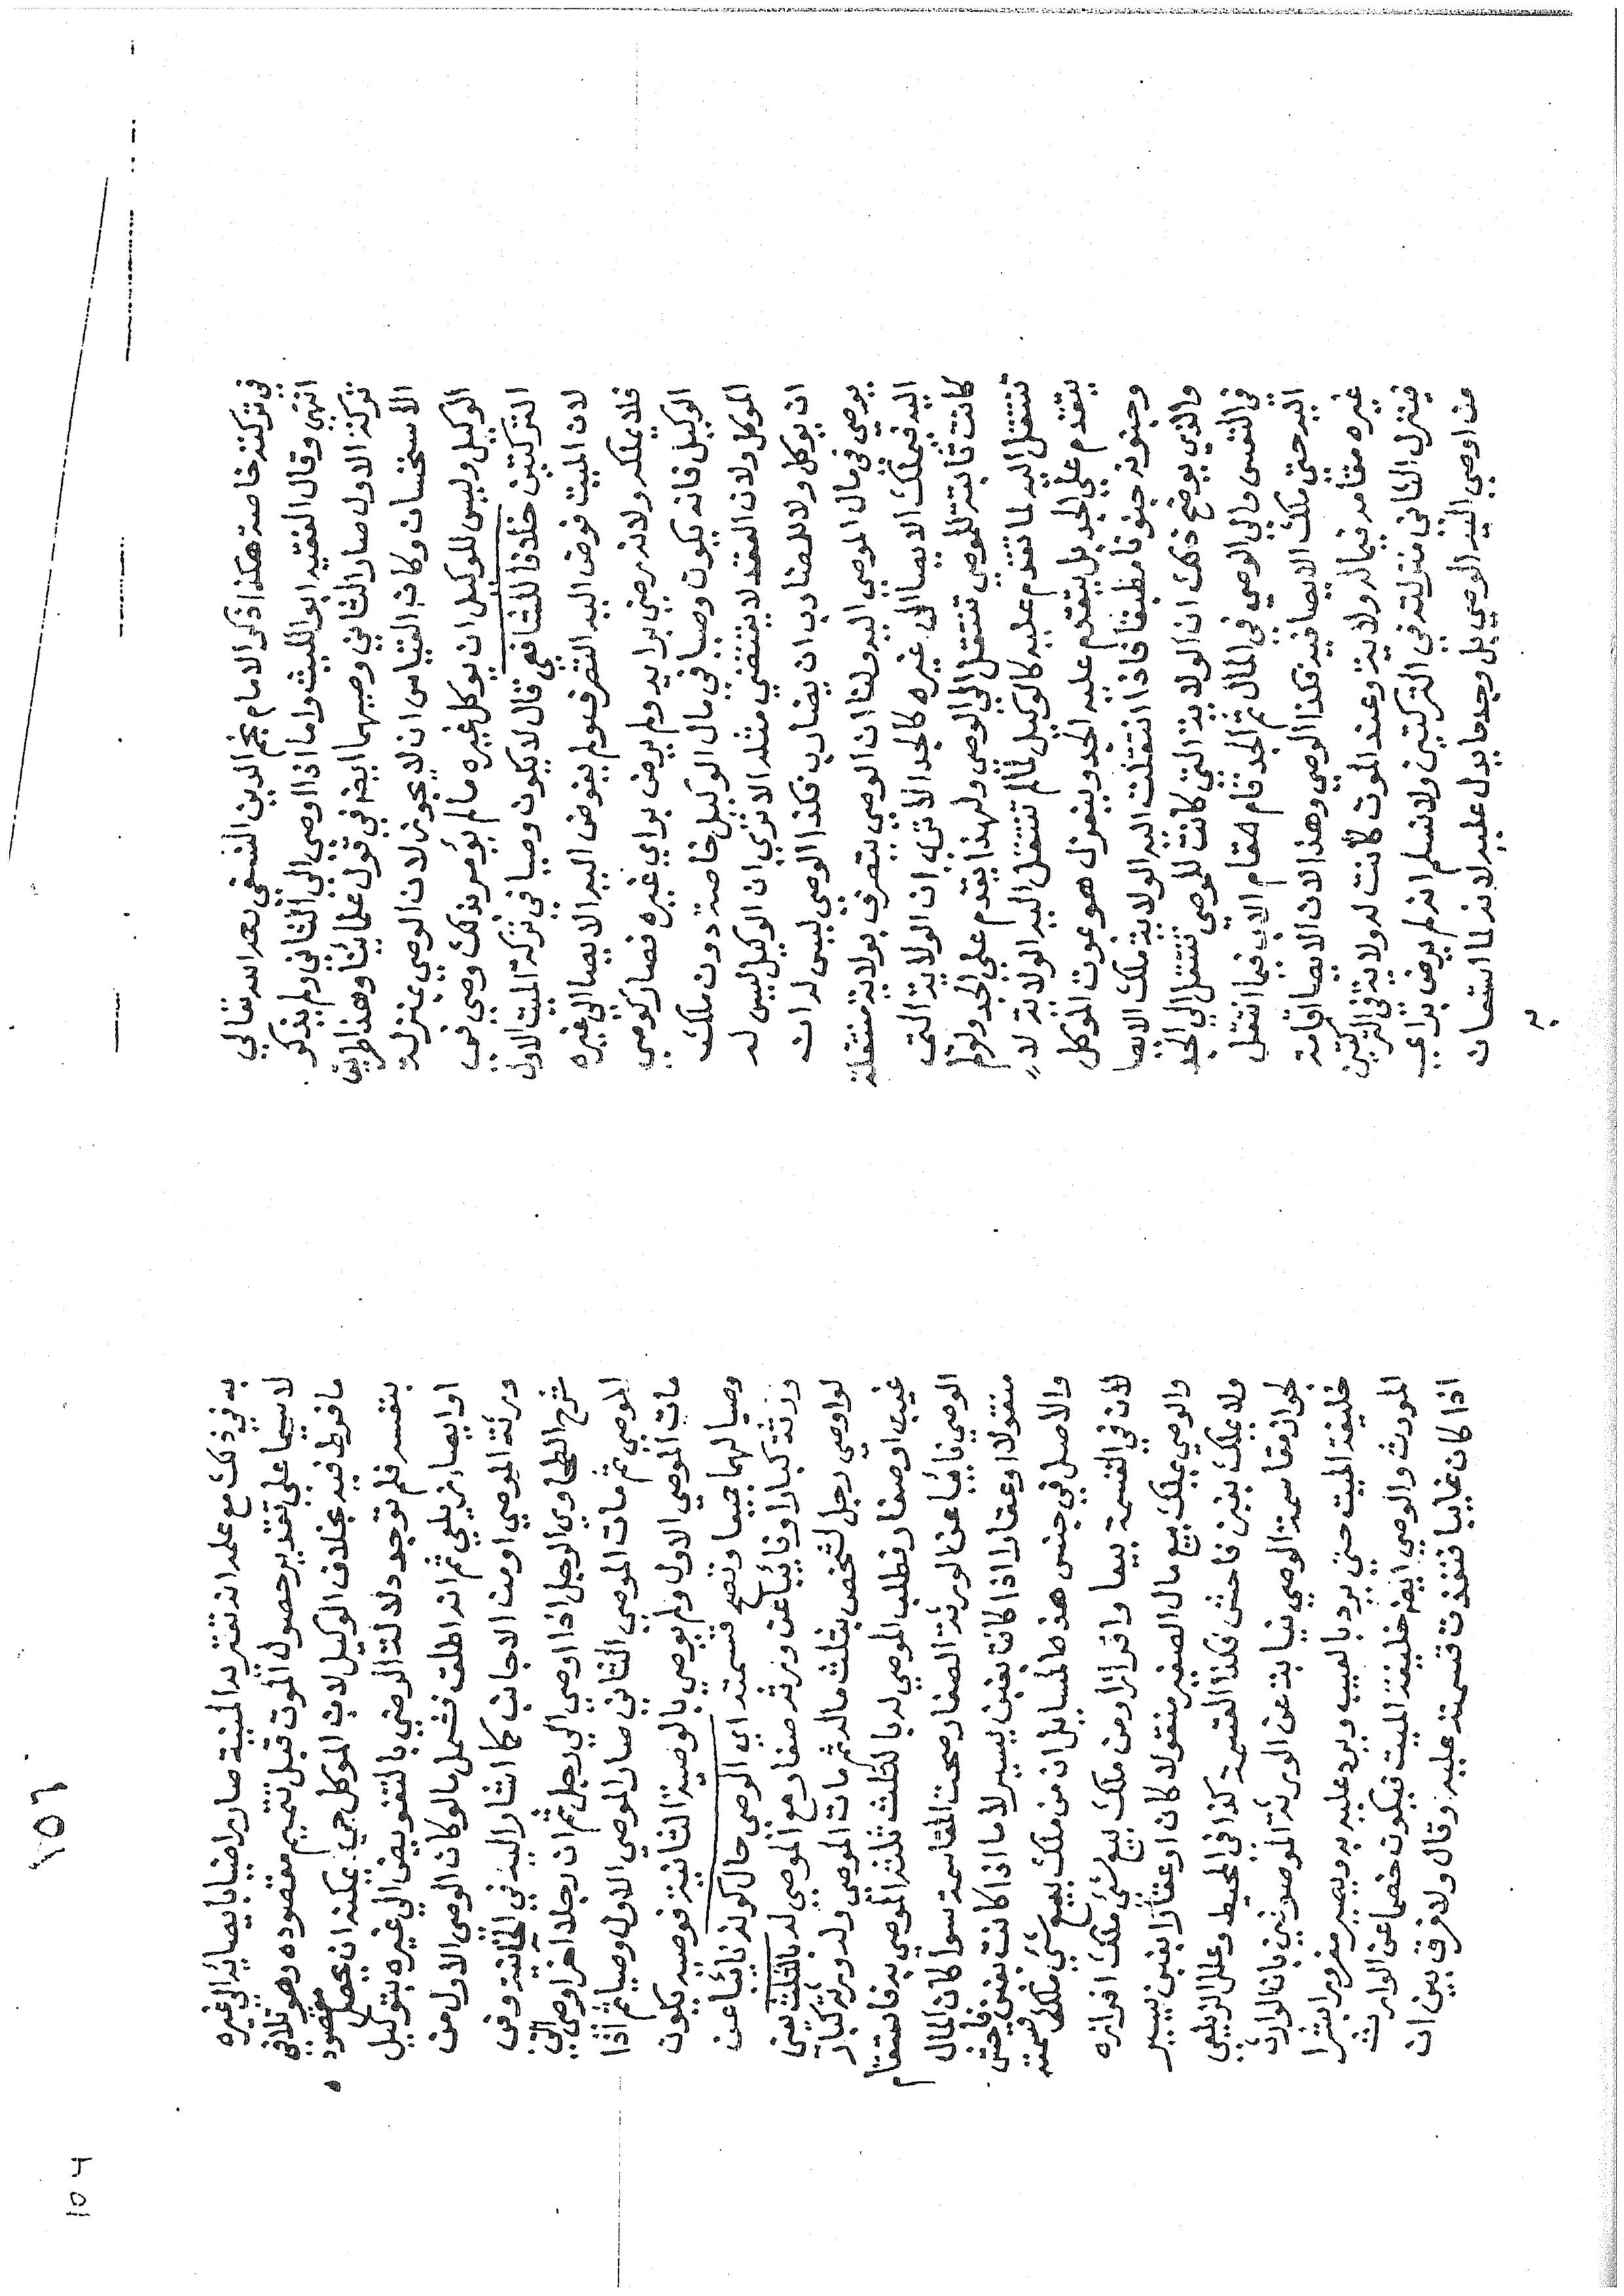 في تركته خاصة هكذا ذكر الامام نجم الدين النسفي رحمه الله تعالي
انتهى وقال الفقيه ابو الليث واما اذا اوصى الى الثاني ولم يذكر
تركة الاول صار الثاني وصيهما ايضا في قول علمائنا وهذا طريق
الاستحسان وكان القياس ان لا يجوز لان الوصي بمنزلة
الوكيل وليس للوكيل ان يوكل غيره ما لم يؤمر بذلك وصي في
التركتين خلافا للشافعي قال لا يكون وصيا في تركة الميت الاول
لان الميت فوض اليه التصرف ولم يفوض اليه الايصا الى غيره
فلا يملكه ولانه رضي برايه ولم يرض براي غيره فصار كوصي
الوكيل فانه يكون وصيا في مال الوكيل خاصة دون ملك
الموكل ولان العقد لا يقتضي مثله الا ترى ان الوكيل ليس له
ان يوكل ولا للمضارب ان يضارب فكذا الوصي ليس له ان
يوصي في مال الموصي اليه ولنا ان الوصي يتصرف بولاية منتقلة
اليه فيملك الايصا الى غيره كالجد الا ترى ان الولاية التي
كانت ثابتة للموصي تنتقل الي الوصي ولهذا يقدم علي الجد ولو لم
تنتقل اليه لما تقدم عليه كالوكيل لما لم تنتقل اليه الولاية لا
يتقدم علي الجد بل يتقدم عليه الجد وينعزل هو بموت الموكل
وجنونه جنونا مطبقا فاذا انتقلت اليه الولاية ملك الايصا
والذي يوضح ذلك ان الولاية التي كانت للموصي تنتقل الي الجد
في النفس والي الوصي في المال ثم الجد قام مقام الاب فيما انتقل
اليه حتي ملك الايصا فيه فكذا الوصي وهذا لان الايصا اقامة
غيره مقامه فيما له ولاية وعند الموت كانت له ولاية في التركتين
فينزل الثاني منزلته في التركتين ولا نسلم انه لم يرض براي
من اوصى اليه الوصي بل وجد ما يدل عليه لانه لما استعان
به
به في ذلك مع علمه انه تعتريه المنية صار راضيا بايصائه الى غيره
لاسيما علي تقدير حصول الموت قبل تتميم مقصوده وهو تلافي
ما فرط فيه بخلاف الوكيل لان الموكل حي يمكنه ان يحصل مقصوده
بنفسه فلم توجد دلالة الرضي بالتفويض الي غيره بتوكيل
او ايصاء زيلعي ثم انه اطلق فشمل ما لو كان الوصي الاول من
ورثة الموصي او من الاجانب كما اشار اليه في الخانية وفي
شرح الطحاوي الرجل اذا اوصي الي رجل ثم ان رجلا اخر اوصى الي
الموصي ثم مات الموصي الثاني صار الموصي الاول وصيا ثم اذا
مات الموصي الاول ولم يوصي بالوصية الثانية فوصيه يكون
وصيا لهما جميعا وتصح قسمته اي الوصي حال كونه نائبا عن
ورثته كبارا وغائبا عن ورثه صغار مع الموصي له بالثلث يعني
لو اوصي رجل لشخص بثلث ماله ثم مات الموصي وله ورثة كبار
غيب او صغار فطلب الموصي له بالثلث ثلثه الموصي به فاستقام
الوصي نائبا عن الورثة الصغار صحت المقاسمة سوا كان المال
منقولا او عقارا اذا كانت بغبن يسير لا ما اذا كانت بغبن فاحش
والاصل في جنس هذه المسايل ان من ملك بيع شئ ملك قسمته
لان في القسمة بيعا وافرازا ومن ملك بيع شئ ملك افرازه
والوصي يملك بيع مال الصغير منقولا كان او عقارا بغبن يسير
ولا يملك بغبن فاحش فكذا القسمة كذا في المحيط وعلل الزيلعي
لجواز مقاسمة الوصي نيابة عن الورثة الموصلا نبن بانا لوارث
خليفة الميت حتي يرد بالعيب ويرد عليه به ويصير مغرورا بشرا
المورث والوصي ايضا خليفة الميت فيكون خصما عن الوارث
اذا كان غايبا فتنفذ قسمته عليه وقال ولا فرق بين ان
١٥٦
104